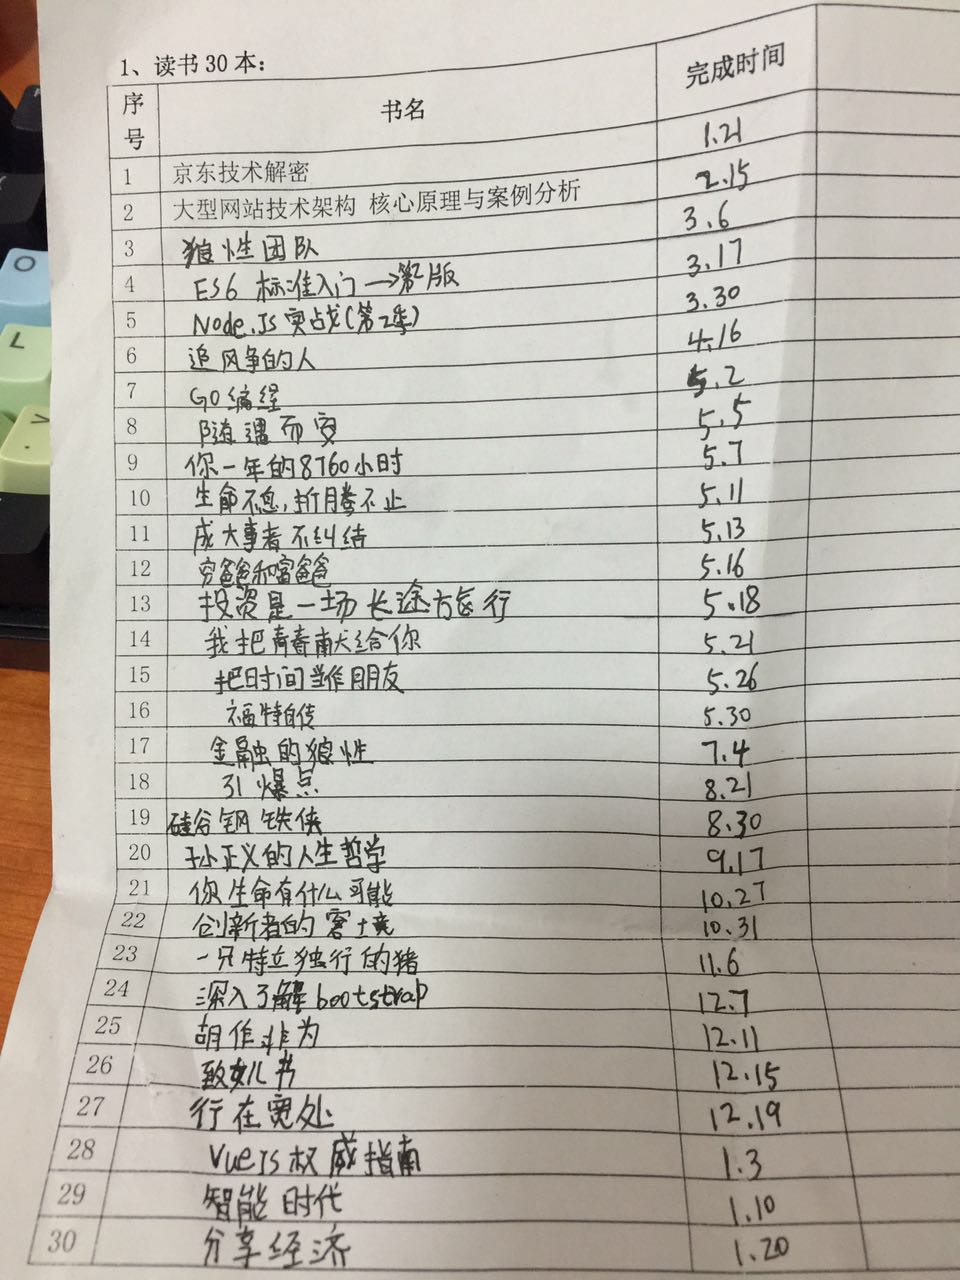 1、读书30本:
序号 书名 完成时间
1 京东技术解密 1.21
2 大型网站技术架构 核心原理与案例分析 2.15
3 狼性团队 3.6
4 ES6 标准入门→第2版 3.17
5 Node.JS 实战(第2季) 3.30
6 追风筝的人 4.16
7 GO编程 5.2
8 随遇而安 5.5
9 你一年的8760小时 5.7
10 生命不息,折腾不止 5.11
11 成大事者不纠结 5.13
12 穷爸爸和富爸爸 5.16
13 投资是一场长途旅行 5.18
14 我把青春献给你 5.21
15 把时间当作朋友 5.26
16 福特自传 5.30
17 金融的狼性 7.4
18 引爆点 8.21
19 硅谷钢铁侠 8.30
20 孙正义的人生哲学 9.17
21 你生命有什么可能 10.27
22 创新者的窘境 10.31
23 一只特立独行的猪 11.6
24 深入了解bootstrap 12.7
25 胡作非为 12.11
26 致女儿书 12.15
27 行在宽处 12.19
28 VueJS权威指南 1.3
29 智能时代 1.10
30 分享经济 1.20
O
L
>
.